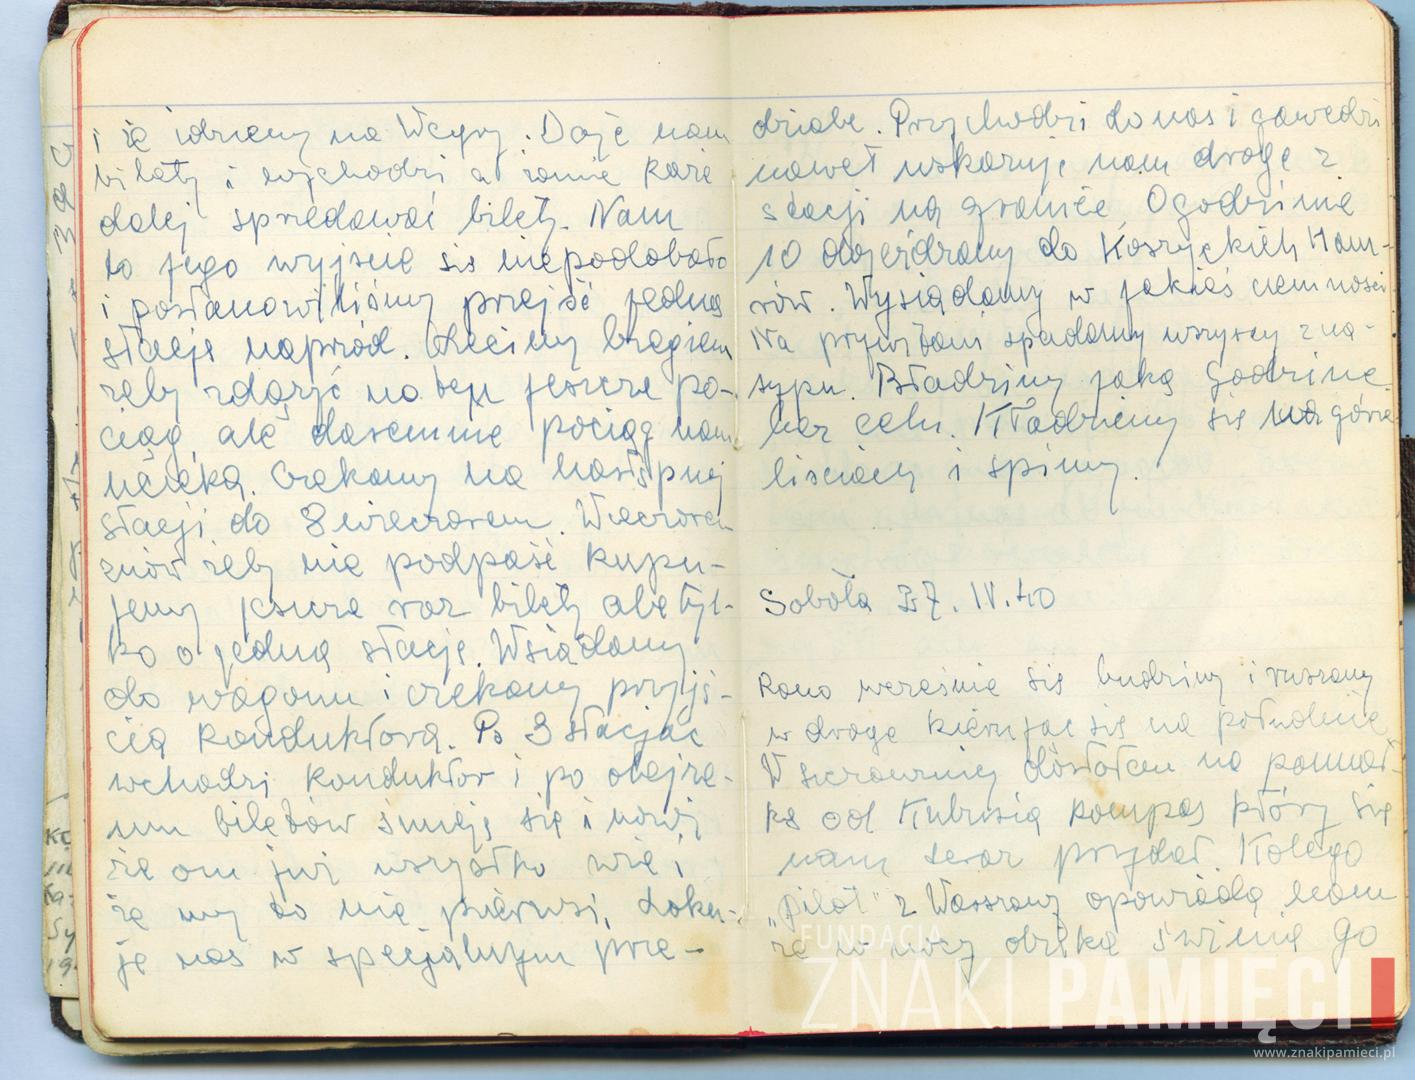 i że idziemy na Węgry. Daje nam
bilety i wychodzi a ranie każe
dalej sprzedawać bilety. Nam
to jego wyjście się niepodobało
i postanowiliśmy przejść jedną
stację naprzód. Lecimy biegiem
żeby zdążyć na ten jeszcze po-
ciąg ale daremnie pociąg nam
ucieka. Czekamy na następnej
stacji do 8 wieczorem. Wieczorem
znów żeby nie podpaść kupu-
jemy jeszcze raz bilety ale tyl-
ko o jedną stację. Wsiadamy
do wagonu i czekamy przyjś-
cia konduktora. Po 3 stacjac
wchodzi konduktor i po obejrze-
niu biletów śmieje się i mówi
że on już wszystko wie i
że my to nie pierwsi, loku-
je nas w specjalnym prze-
dziale. Przychodzi do nas i gawędzi
nawet wskazuje nam drogę z
stacji na granicę. O godzinie
10 dojeżdżamy do Koszyckich Ham-
rów. Wysiadamy w jakieś ciemności.
Na przywitani spadamy wszyscy z na-
sypu. Błądzimy jaką godzinę
bez celu. Kładziemy się na górze
liściach i spimy.
Sobota 27. IV. 40
Rano wcześnie się budzimy i ruszamy
w drogę kierując się na południe
W szczawnicy dostałem na pamiąt-
kę od Kubusia kompas który się
nam teraz przydał. Kolega
„pilot" z Warszawy opowiada nam
że w nocy dzika świnia go
FUNDACJA
ZNAKI PAMIĘCI
www.znakipamieci.pl